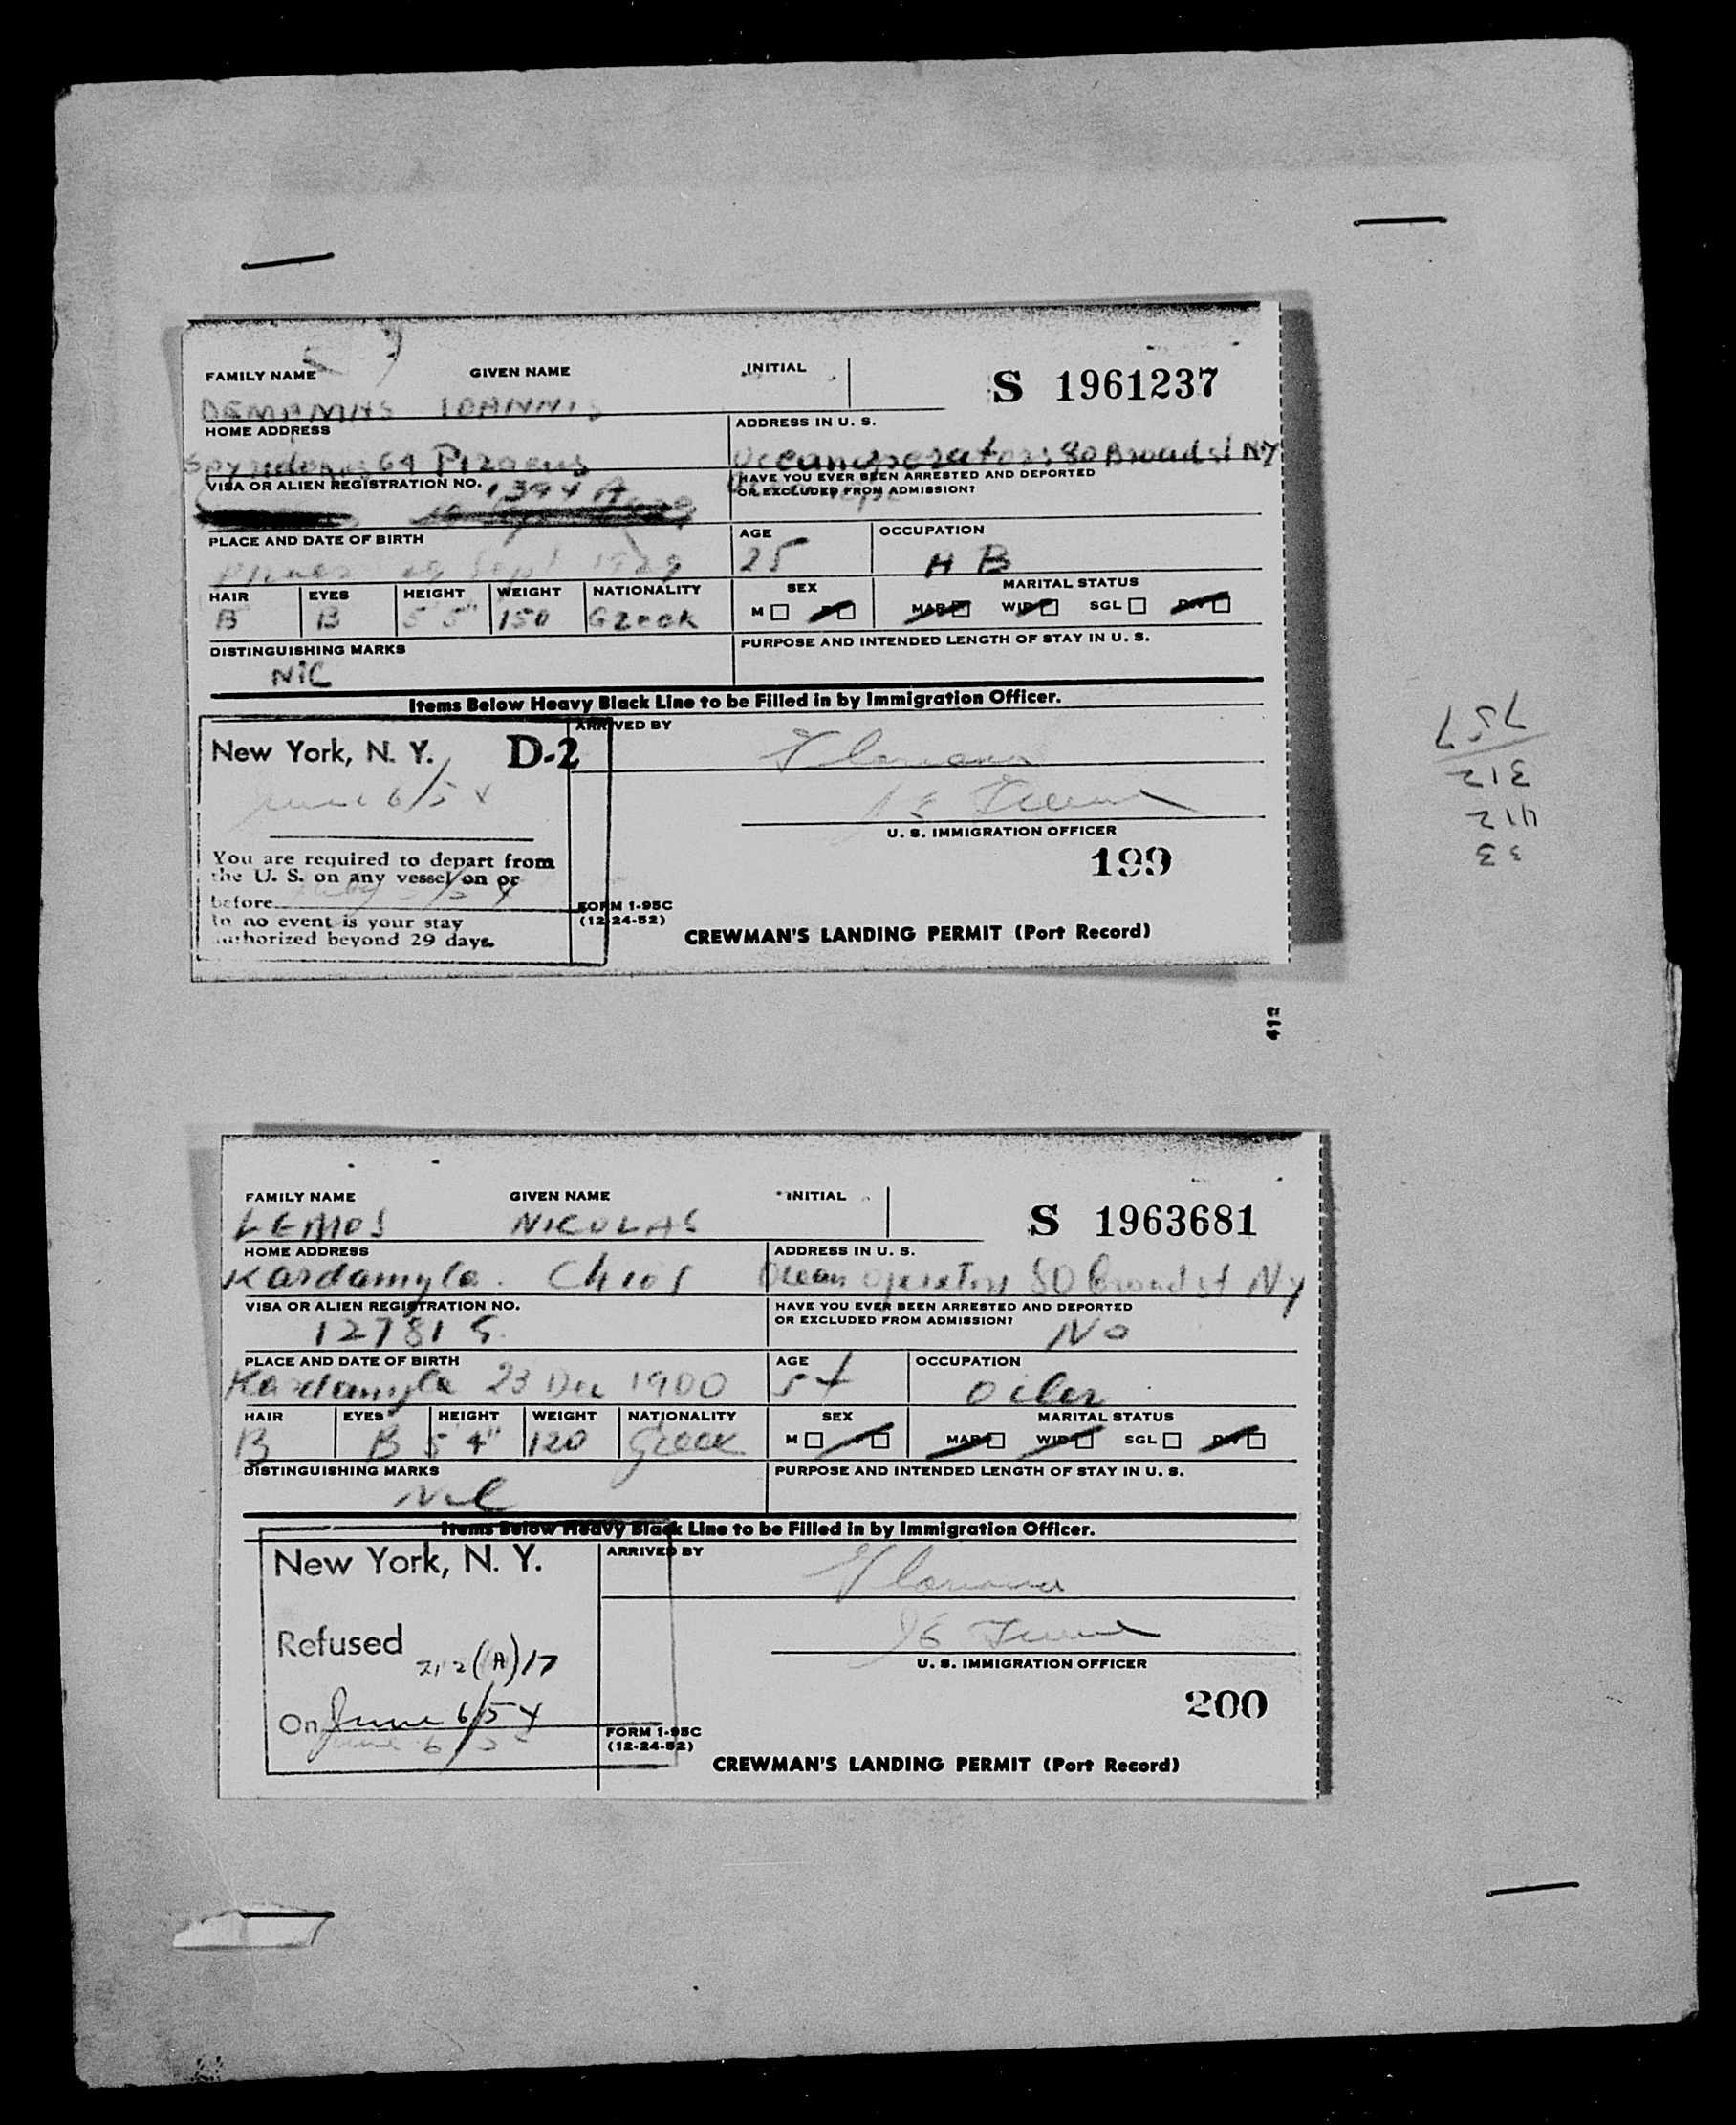 FAMILY NAME GIVEN NAME INITIAL
S 1961237
IOANNIS
HOME ADDRESS ADDRESS IN U. S.
64 Piraeus Oceanoperators 80 Broad st NY
VISA OR ALIEN REGISTRATION NO. HAVE YOU EVER BEEN ARRESTED AND DEPORTED
OR EXCLUDED FROM ADMISSION?
1394 A
PLACE AND DATE OF BIRTH AGE OCCUPATION
Sept 1929 25 H B
HAIR EYES HEIGHT WEIGHT NATIONALITY SEX MARITAL STATUS
B B 5 5" 150 Greek M F MAR WID SGL DIV
DISTINGUISHING MARKS PURPOSE AND INTENDED LENGTH OF STAY IN U. S.
NIL
Items Below Heavy Black Line to be Filled in by Immigration Officer.
New York, N. Y. D-2 ARRIVED BY
June 6/54
U. S. IMMIGRATION OFFICER
You are required to depart from
the U. S. on any vessel on or
before
In no event is your stay
authorized beyond 29 days.
199
FORM I-95C
(12-24-52)
CREWMAN'S LANDING PERMIT (Port Record)
757
312
412
33
412
FAMILY NAME GIVEN NAME INITIAL
S 1963681
LEMOS NICOLAS
HOME ADDRESS ADDRESS IN U. S.
Kardamyla. Chios Ocean operators 80 Broad st NY
VISA OR ALIEN REGISTRATION NO. HAVE YOU EVER BEEN ARRESTED AND DEPORTED
OR EXCLUDED FROM ADMISSION?
12781 No
PLACE AND DATE OF BIRTH AGE OCCUPATION
Kardamyla 23 Dec 1900 54 oiler
HAIR EYES HEIGHT WEIGHT NATIONALITY SEX MARITAL STATUS
B B 5 4" 120 Greek M F MAR WID SGL DIV
DISTINGUISHING MARKS PURPOSE AND INTENDED LENGTH OF STAY IN U. S.
Nil
Items Below Heavy Black Line to be Filled in by Immigration Officer.
New York, N. Y. ARRIVED BY
Refused 212(A)17
U. S. IMMIGRATION OFFICER
On June 6/54
200
FORM I-95C
(12-24-52)
CREWMAN'S LANDING PERMIT (Port Record)